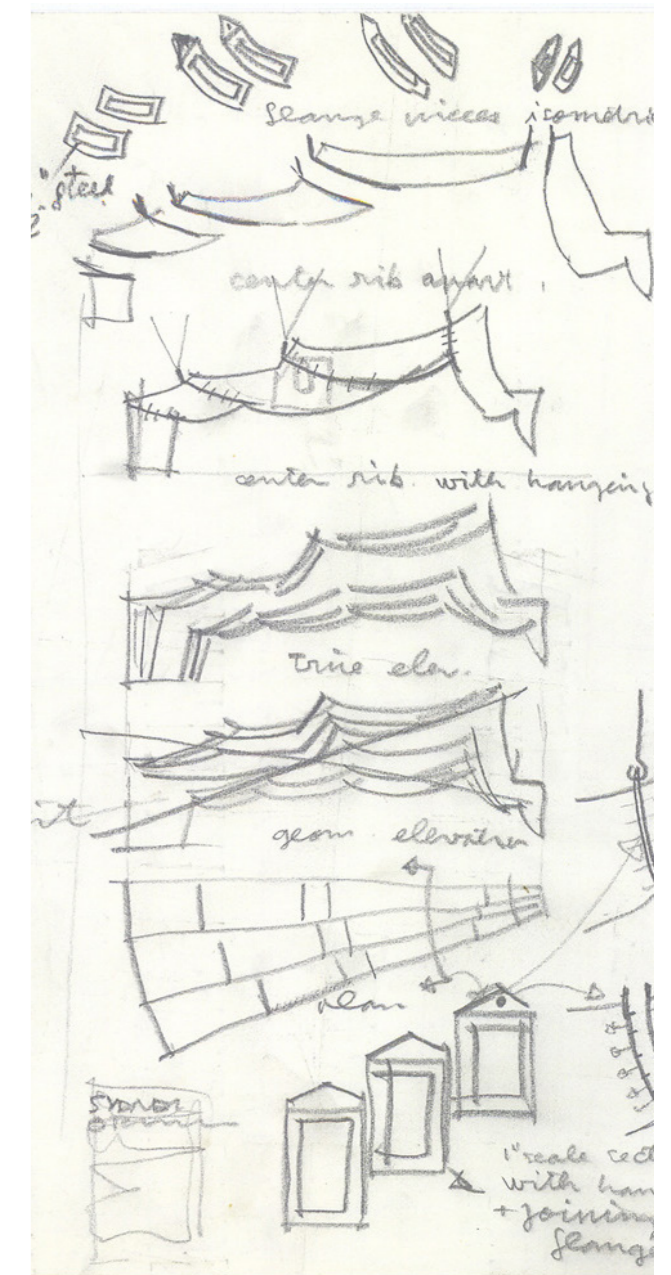 flange pieces isometric
" steel
center rib apart.
center rib with hanging
true elev.
geom. elevation
plan
SYDNEY
1" scale sect
with han
+ joining
flange